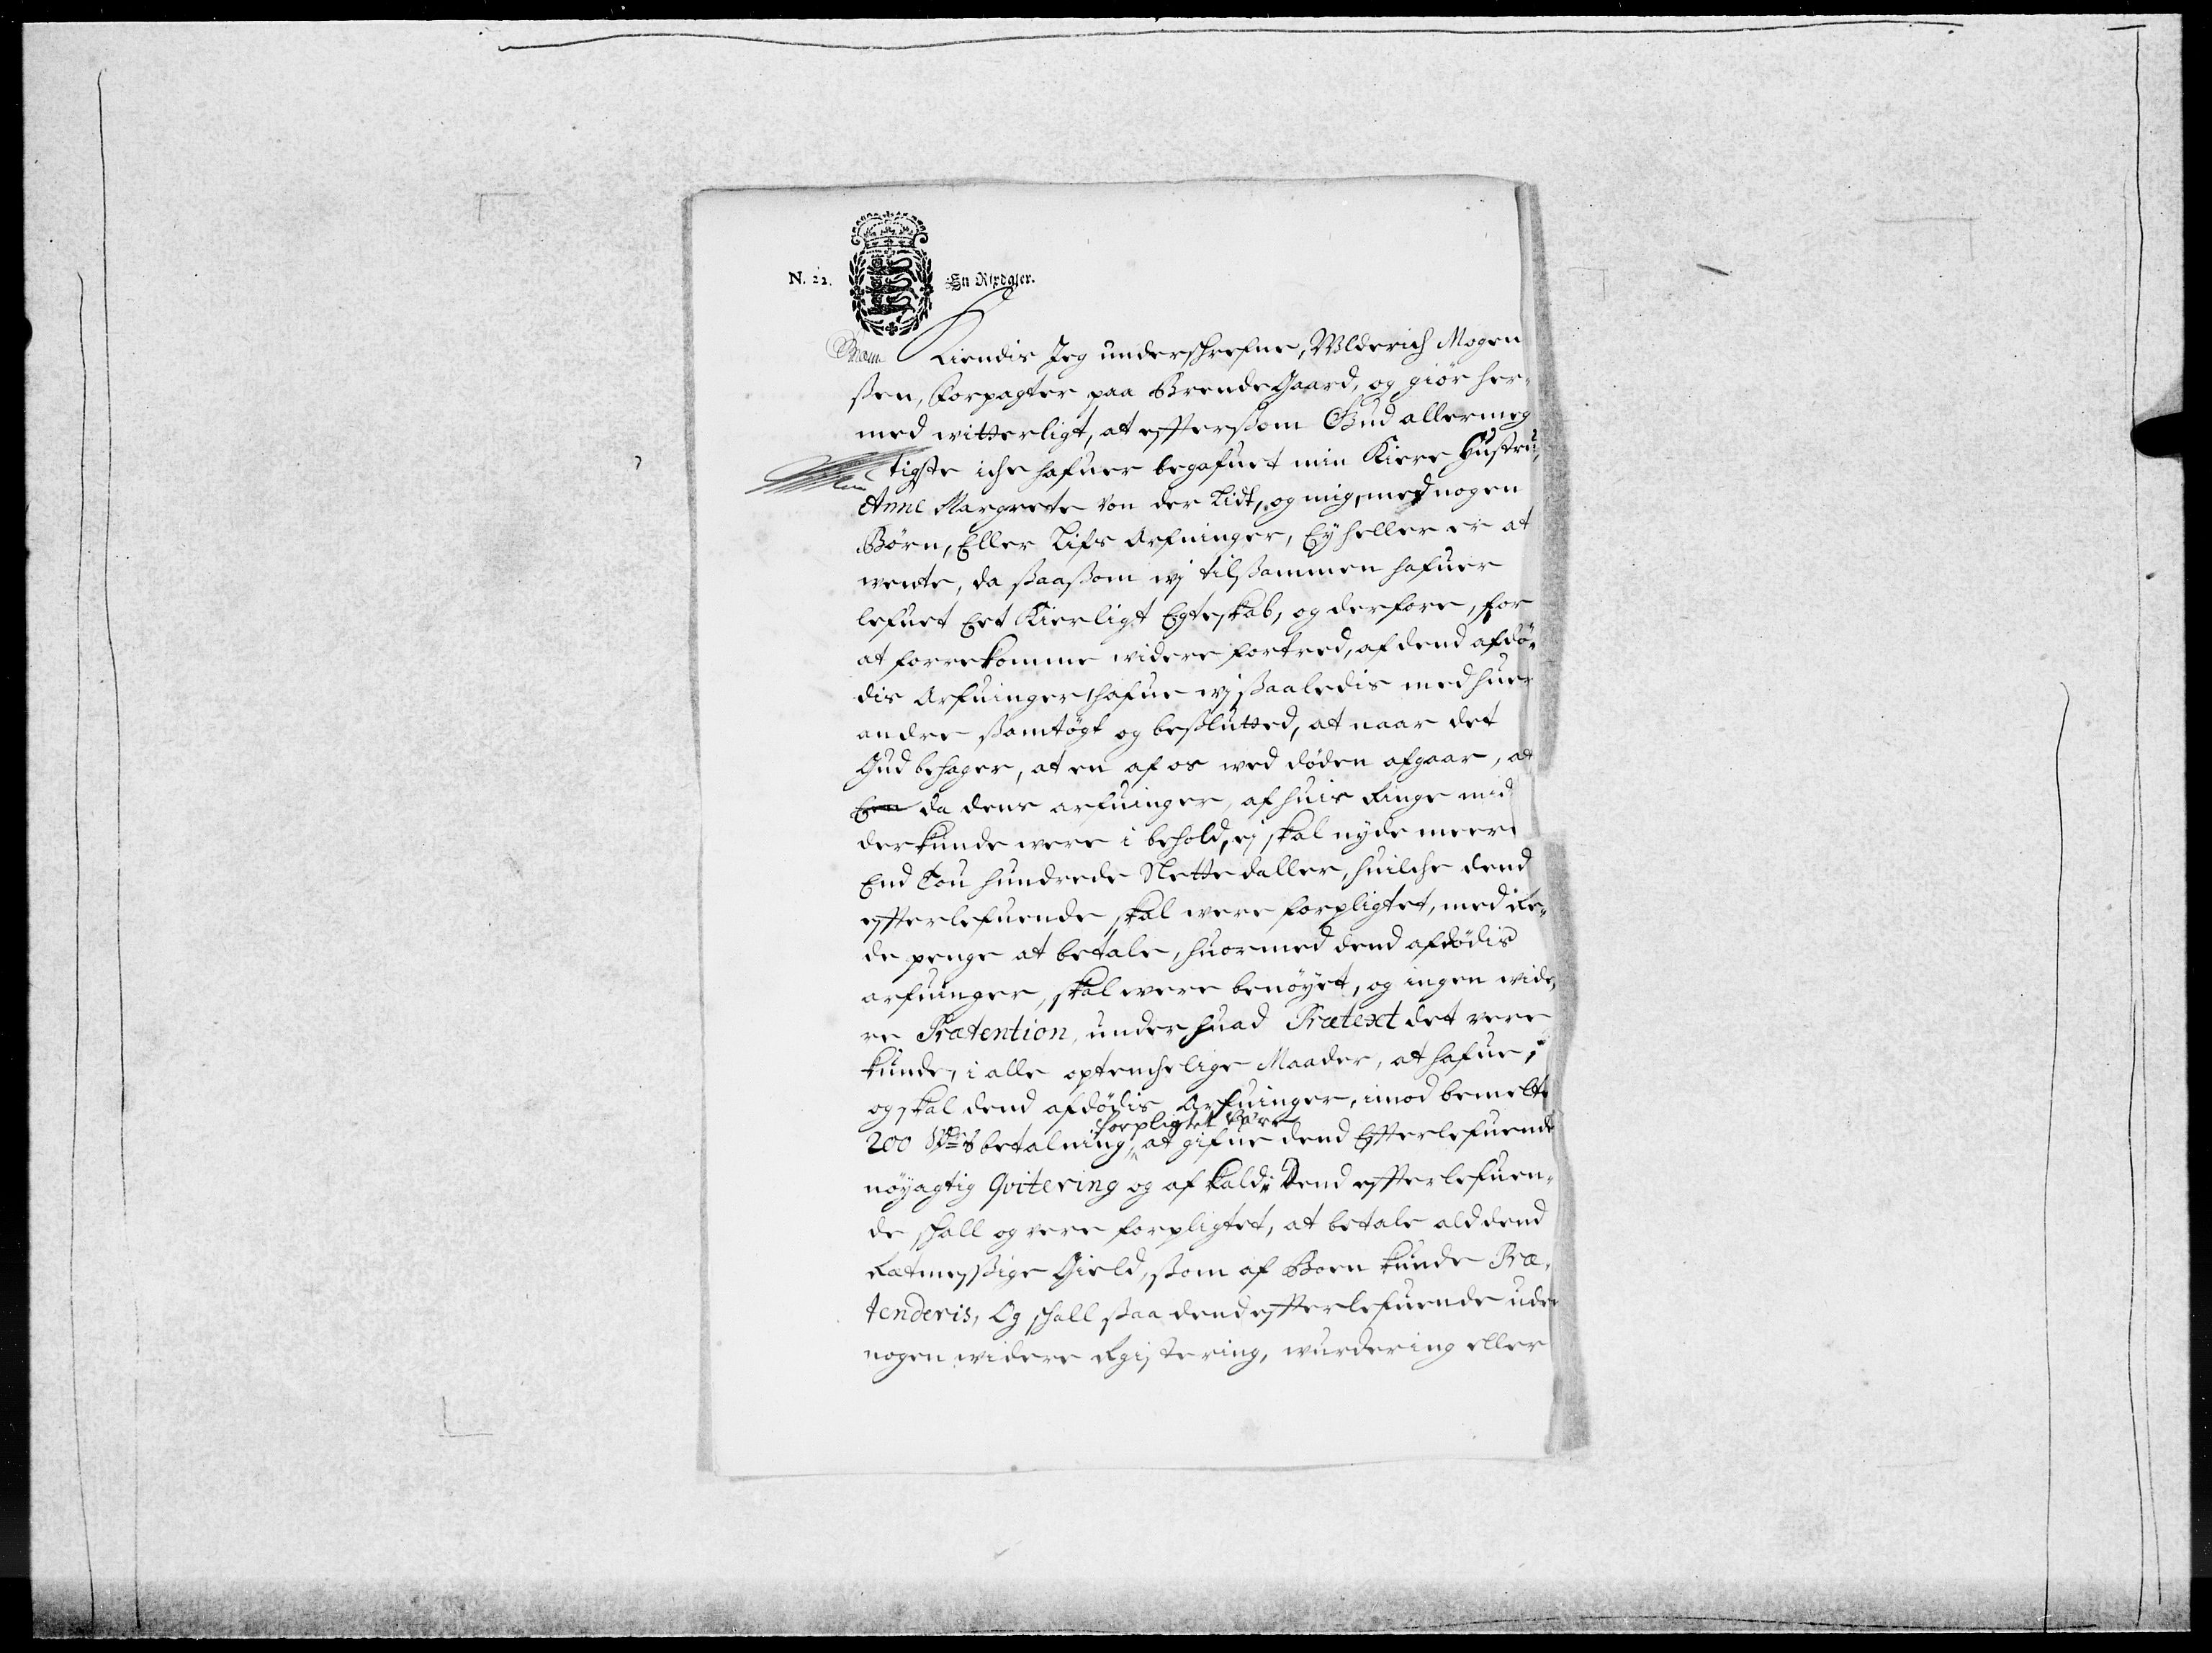 N. 22. En Rixdaler.
Kiendis Jeg underskrefne, Wlderich Mogen
ßen, Forpagter paa Brende Gaard, og giör her¬
med witterligt, at efftersom Gud allermeg
tigste iche hafuer begafuet min Kiere Hustru,
Anne Margrete von der Lidt, og mig, med nogen
Börn, Eller Lifs Arfuinger, Ey heller er at
wente, da ßaaßom wj tilßammen hafuer
lefuet Eet Kierligt Egteskab, og derfore, for
at forrekomme widere fortred, af dend afdö¬
dis Arfuinger, hafue wj ßaaledis med huer
andre ßamtögt og beslutted, at naar det
Gud behager, at en af os wed döden afgaar, at
Een da dens arfuinger, af huis Ringe mid
der kunde were i behold, ej skal nyde meere
End Tou hundrede Slettedaller, huilche dend
effterlefuende skal were forpligtet, med Re¬
de penge at betale, huormed dend afdödis
arfuinger, skal were benöyet, og ingen wide,
re Prætention, under huad Prætext det vere
kunde, i alle optenchelige Maader, at hafue,
og skal dend afdödis Arfuinger, imod bemelte
forpligtet være
200 Sldrs betalning, at gifue dend Effterlefuende
nöyagtig Qvitering og afkald; Dend effterlefuen¬
de shall og vere forpligtet, at betale ald dend
Retmessige Gield, ßom af Boen kunde Præ¬
tenderis, Og shall ßaa dend effterlefuende uden
nogen widere Rgistering, wurdering eller